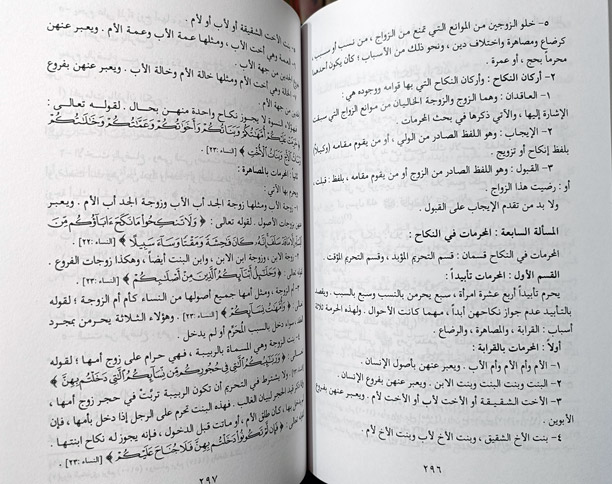 ٥- خلو الزوجين من الموانع التي تمنع من الزواج ، من نسب أو سبب ،
كرضاع ومصاهرة واختلاف دين ، ونحو ذلك من الأسباب ؛ كأن يكون أحدهما
محرماً بحج ، أو عمرة .
٢- أركان النكاح : وأركان النكاح التي بها قوامه ووجوده هي :
١- العاقدان : وهما الزوج والزوجة الخاليان من موانع الزواج التي سبقت
الإشارة إليها ، والآتي ذكرها في بحث المحرمات .
٢- الإيجاب : وهو اللفظ الصادر من الولي ، أو من يقوم مقامه (وكيلاً)
بلفظ إنكاح أو تزويج .
٣- القبول : وهو اللفظ الصادر من الزوج أو من يقوم مقامه ، بلفظ : قبلت ،
أو : رضيت هذا الزواج .
ولا بد من تقدم الإيجاب على القبول .
المسألة السابعة : المحرمات في النكاح :
المحرمات في النكاح قسمان : قسم التحريم المؤبد ، وقسم التحريم المؤقت .
القسم الأول : المحرمات تأبيداً :
يحرم تأبيداً أربع عشرة امرأة ، سبع يحرمن بالنسب وسبع بالسبب . ويقصد
بالتأبيد عدم جواز نكاحهن أبداً ، مهما كانت الأحوال . ولهذه الحرمة ثلاثة
أسباب : القرابة ، والمصاهرة ، والرضاع .
أولاً : المحرمات بالقرابة :
١- الأم وأم الأم وأم الأب . ويعبر عنهن بأصول الإنسان .
٢- البنت وبنت البنت وبنت الابن . ويعبر عنهن بفروع الإنسان .
٣- الأخت الشقيقة أو الأخت لأب أو الأخت لأم . ويعبر عنهن بفروع
الأبوين .
٤- بنت الأخ الشقيق ، وبنت الأخ لأب وبنت الأخ لأم .
٢٩٦
بنت الأخت الشقيقة أو لأب أو لأم .
العمة وهي أخت الأب ، ومثلها عمة الأب وعمة الأم . ويعبر عنهن
من جهة الأب .
الخالة وهي أخت الأم ومثلها خالة الأم وخالة الأب . ويعبر عنهن بفروع
من جهة الأم .
لا يجوز نكاح واحدة منهن بحال . لقوله تعالى :
﴿حُرِّمَتْ عَلَيْكُمْ أُمَّهَٰتُكُمْ وَبَنَاتُكُمْ وَأَخَوَٰتُكُمْ وَعَمَّٰتُكُمْ وَخَٰلَٰتُكُمْ
وَبَنَاتُ ٱلْأَخِ وَبَنَاتُ ٱلْأُخْتِ﴾ [النساء : ٢٣] .
ثانياً : المحرمات بالمصاهرة :
ويحرم بها الآتي :
زوجة الأب ومثلها زوجة الجد أب الأب وزوجة الجد أب الأم . ويعبر
الأصول . لقوله تعالى : ﴿وَلَا تَنكِحُوا۟ مَا نَكَحَ ءَابَآؤُكُم مِّنَ
ٱلنِّسَآءِ إِلَّا مَا قَدْ سَلَفَ إِنَّهُۥ كَانَ فَٰحِشَةً وَمَقْتًا وَسَآءَ سَبِيلًا﴾ [النساء : ٢٢] .
زوجة الابن ، وزوجة ابن الابن ، وابن البنت أيضاً ، وهكذا زوجات الفروع .
تعالى : ﴿وَحَلَٰٓئِلُ أَبْنَآئِكُمُ ٱلَّذِينَ مِنْ أَصْلَٰبِكُمْ﴾ [النساء : ٢٣] .
أم الزوجة ، ومثل أمها جميع أصولها من النساء كأم أم الزوجة ؛ لقوله
﴿وَأُمَّهَٰتُ نِسَآئِكُمْ﴾ [النساء : ٢٣] . وهؤلاء الثلاثة يحرمن بمجرد
سواء دخل بالسبب المُحَرِّم أو لم يدخل .
بنت الزوجة وهي المسماة بالربيبة ، فهي حرام على زوج أمها ؛ لقوله
﴿وَرَبَٰٓئِبُكُمُ ٱلَّٰتِى فِى حُجُورِكُم مِّن نِّسَآئِكُمُ ٱلَّٰتِى دَخَلْتُم بِهِنَّ﴾
. ولا يشترط في التحريم أن تكون الربيبة تربَّتْ في حجر زوج أمها ،
الحجر لبيان الغالب . فهذه البنت تحرم على الرجل إذا دخل بأمها ، فإن
كأن طلق الأم ، أو ماتت قبل الدخول ، فإنه يجوز له نكاح ابنتها .
﴿فَإِن لَّمْ تَكُونُوا۟ دَخَلْتُم بِهِنَّ فَلَا جُنَاحَ عَلَيْكُمْ﴾ [النساء : ٢٣] .
٢٩٧